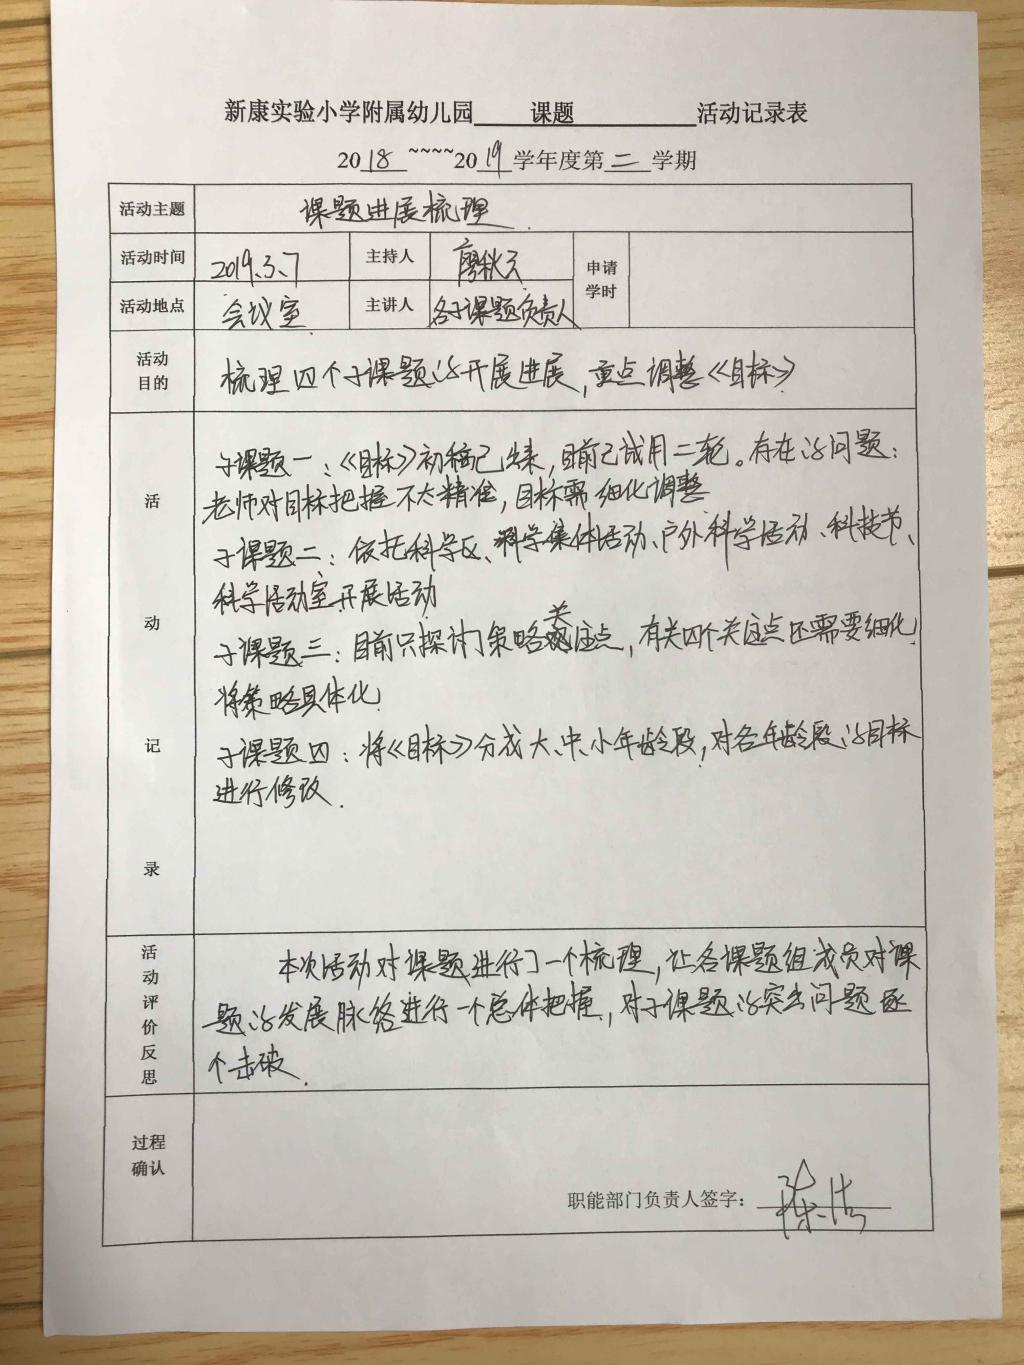 新康实验小学附属幼儿园 课题 活动记录表
2018 ~~~~2019学年度第二学期
活动主题 课题进展梳理
活动时间 2019.3.7 主持人 廖秋云 申请学时
活动地点 会议室 主讲人 各子课题负责人
活动目的 梳理四个子课题的开展进展，重点调整《目标》
活动记录
子课题一：《目标》初稿已出来，目前已试用二轮。存在的问题：
老师对目标把握不太精准，目标需细化调整
子课题二：依托科学区、科学集体活动、户外科学活动、科技节、
科学活动室开展活动
子课题三：目前只探讨了策略关注点，有关四个关注点还需要细化
将策略具体化
子课题四：将《目标》分成大、中、小年龄段，对各年龄段的目标
进行修改.
活动评价反思
本次活动对课题进行了一个梳理，让各课题组成员对课
题的发展脉络进行一个总体把握，对子课题的突出问题逐
个击破.
过程确认
职能部门负责人签字：